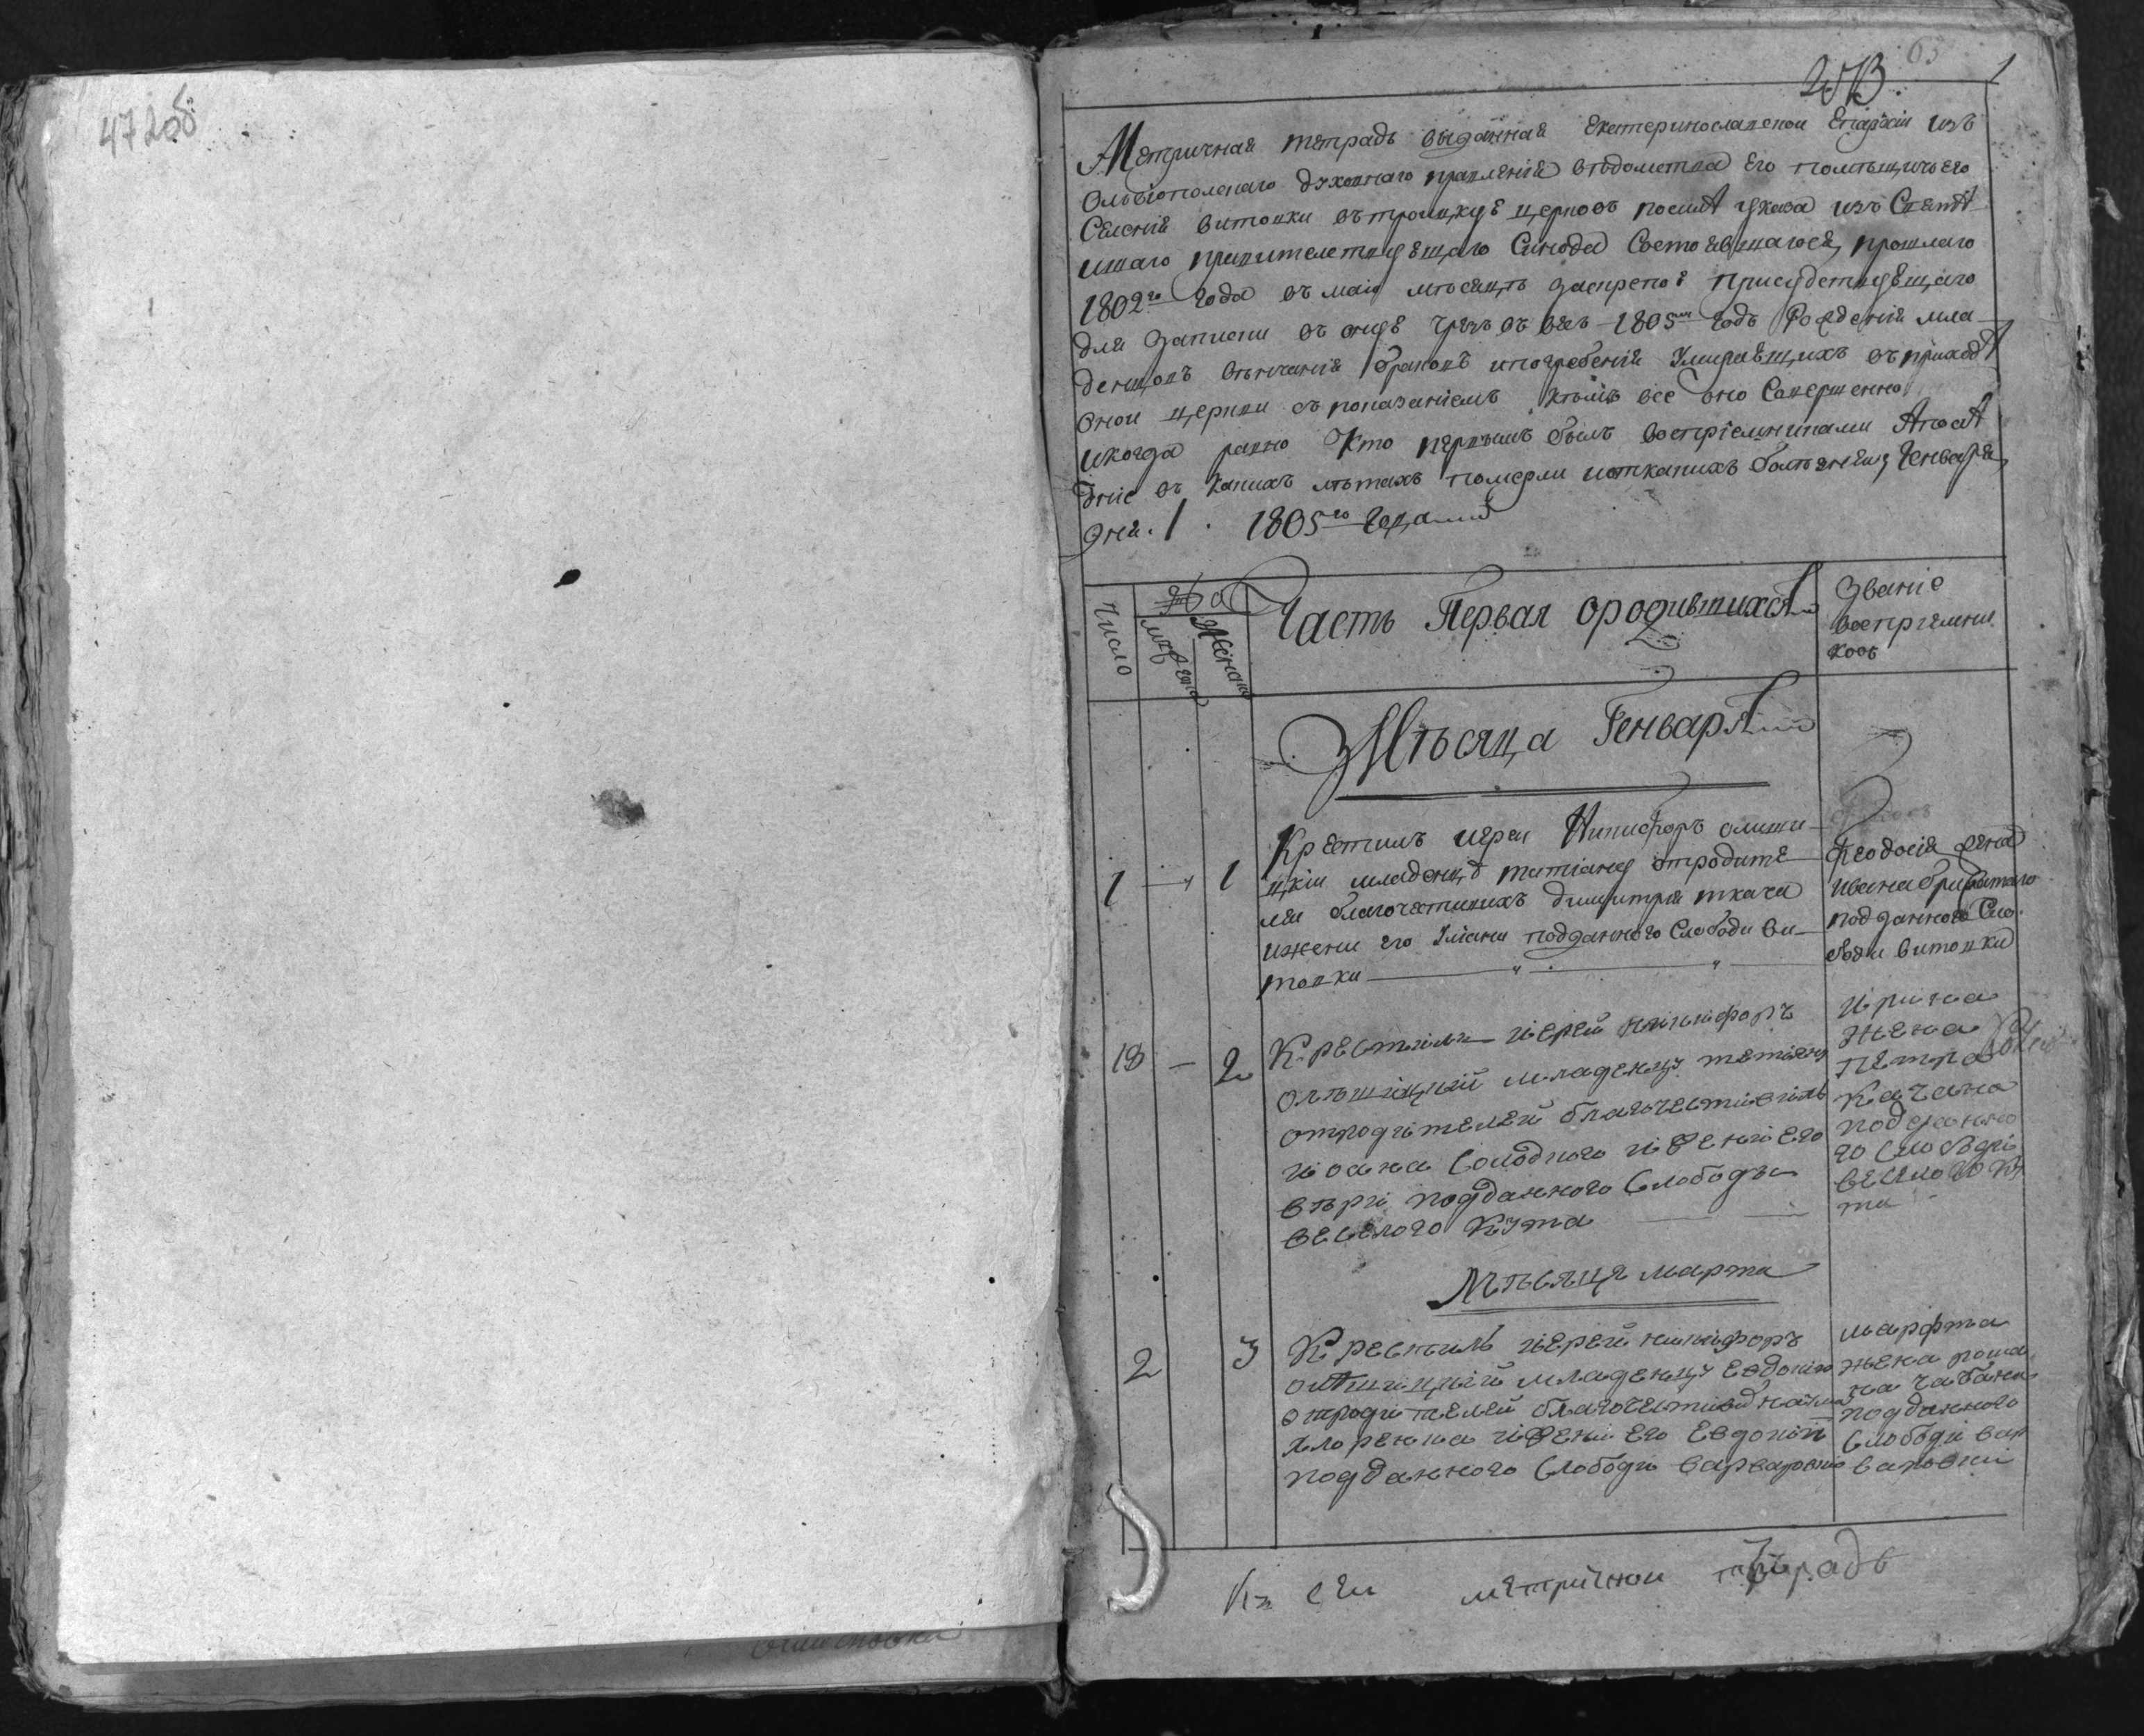 472об
63
1
Метричная тетрадь выданная Екатеринославской Епархіи изъ
Ольвіополскаго духовнаго правленія вѣдомства его помѣщичьего
Селенія витовки въ троицкую церковь после указа изъ Свят
ишаго правителствующаго Синода Состоявшагося прошлаго
1802го года въ маіи мѣсяцѣ заскрепою Присудствующаго
для записки въ оную чрезъ весь 1805ый годъ Рожденія мла-
денцовъ вѣнчанія браковъ и погребенія Умирающихъ въ приходѣ
оной церкви съ показаніемъ кѣмъ все оно Совершенно
и когда равно Кто первымъ былъ воспріемниками
въ какихъ лѣтахъ померли и откакихъ болѣзней, Генваря
дня. 1. 1805го года
Число
мужеска
Женска
Часть Первая ородившихся
Званіе
воспріемни
ковъ
Мѣсяца Генваря
1 — 1
Крестилъ иерей Никифоръ олши-
цкіи младенца татіану отродите-
лей благочестивихъ димитрія ткача
ижени его Уліани подданного Слободи ви-
товки
Феодосія жена
ивана
подданного Сло
боди витовки
18 — 2
Крестилъ иерей никифоръ
олъшицкій младенцу татіану
отродителей благочестивихъ
иоана Солодкого и жени его
подданного Слободы
веселого Кута
Ирина
жена
петра
качана
поддано
го Слободи
веселого Ку
та
Мѣсяця марта
2 3
Крестилъ иерей никифоръ
олшицкій младенцу Евдокію
отродителей благочестивих
и жени его Евдокіи
подданного Слободи варваровки
марфта
жена рома
на чабана
подданного
Слободи вар
варовки
Къ сеи метричнои тетрадѣ